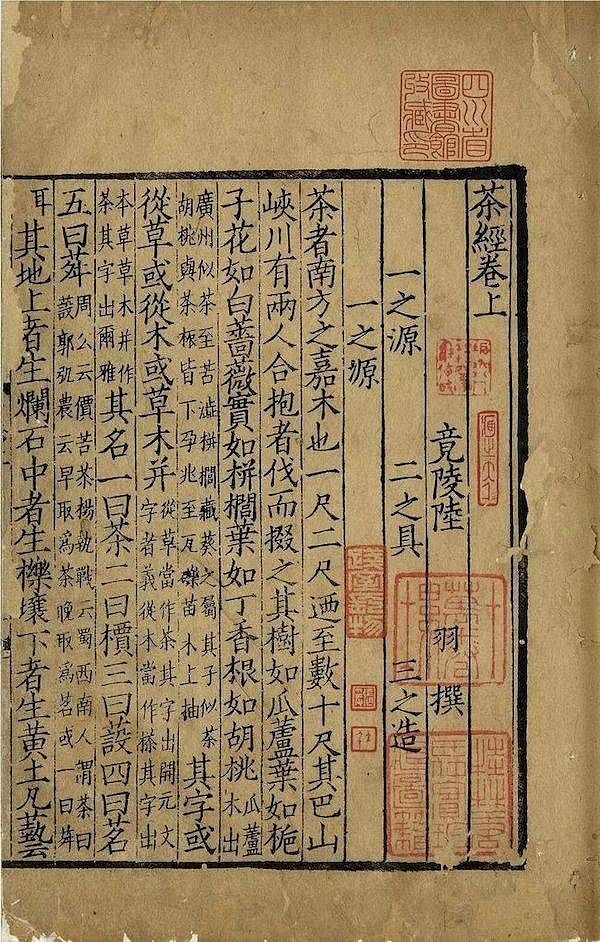 四川省
圖書館
收藏印
茶經卷上
竟陵陸 羽 撰
一之源 二之具 三之造
一之源
茶者南方之嘉木也一尺二尺迺至數十尺其巴山
峽川有兩人合抱者伐而掇之其樹如瓜蘆葉如梔
子花如白薔薇實如栟櫚葉如丁香根如胡桃瓜蘆木出
廣州似茶至苦澁栟櫚藏葵之屬其子似茶胡桃與茶根皆下孕兆至瓦礫苗木上抽其字或
從草或從木或草木并從草當作茶其字出開元文字者義從木當作搽其字出
本草草木并作茶其字出爾雅其名一曰茶二曰檟三曰設四曰茗
五曰荈周公云價苦茶楊執戟云蜀西南人謂茶曰蔎郭弘農云早取爲茶晚取爲茗或一曰荈
耳其地上者生爛石中者生櫟壤下者生黃土凡藝